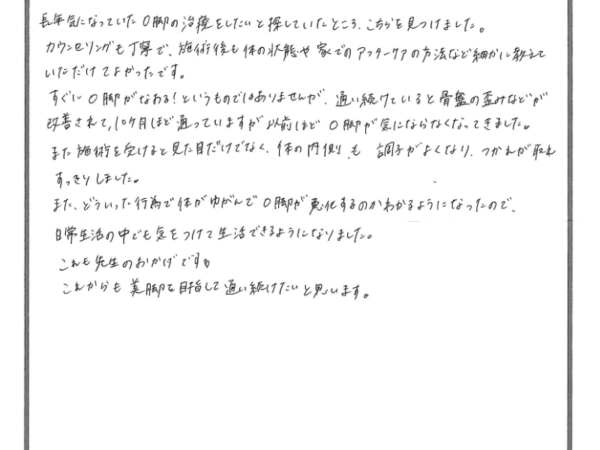 長年気になっていたO脚の治療をしたいと探していたところ、こちらを見つけました。
カウンセリングも丁寧で、施術後も体の状態や家でのアフターケアの方法など細かに教えて
いただけてよかったです。
すぐにO脚がなおる!というものではありませんが、通い続けていると骨盤の歪みなどが
改善されて、10ヶ月ほど通っていますが以前ほどO脚が気にならなくなってきました。
また施術を受けると見た目だけでなく、体の内側も調子がよくなり、つかれが取れ
すっきりしました。
また、どういった行為で体がゆがんでO脚が悪化するのかわかるようになったので、
日常生活の中でも気をつけて生活できるようになりました。
これも先生のおかげです
これからも美脚を目指して通い続けたいと思います。